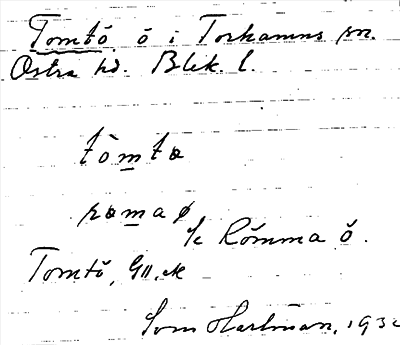 Tomtö ö i Torhamns sn.
Östra hd. Blek. l.
tòmtø
romaø
/c Römma ö.
Tomtö, GII, ek
Sven Hartman, 193